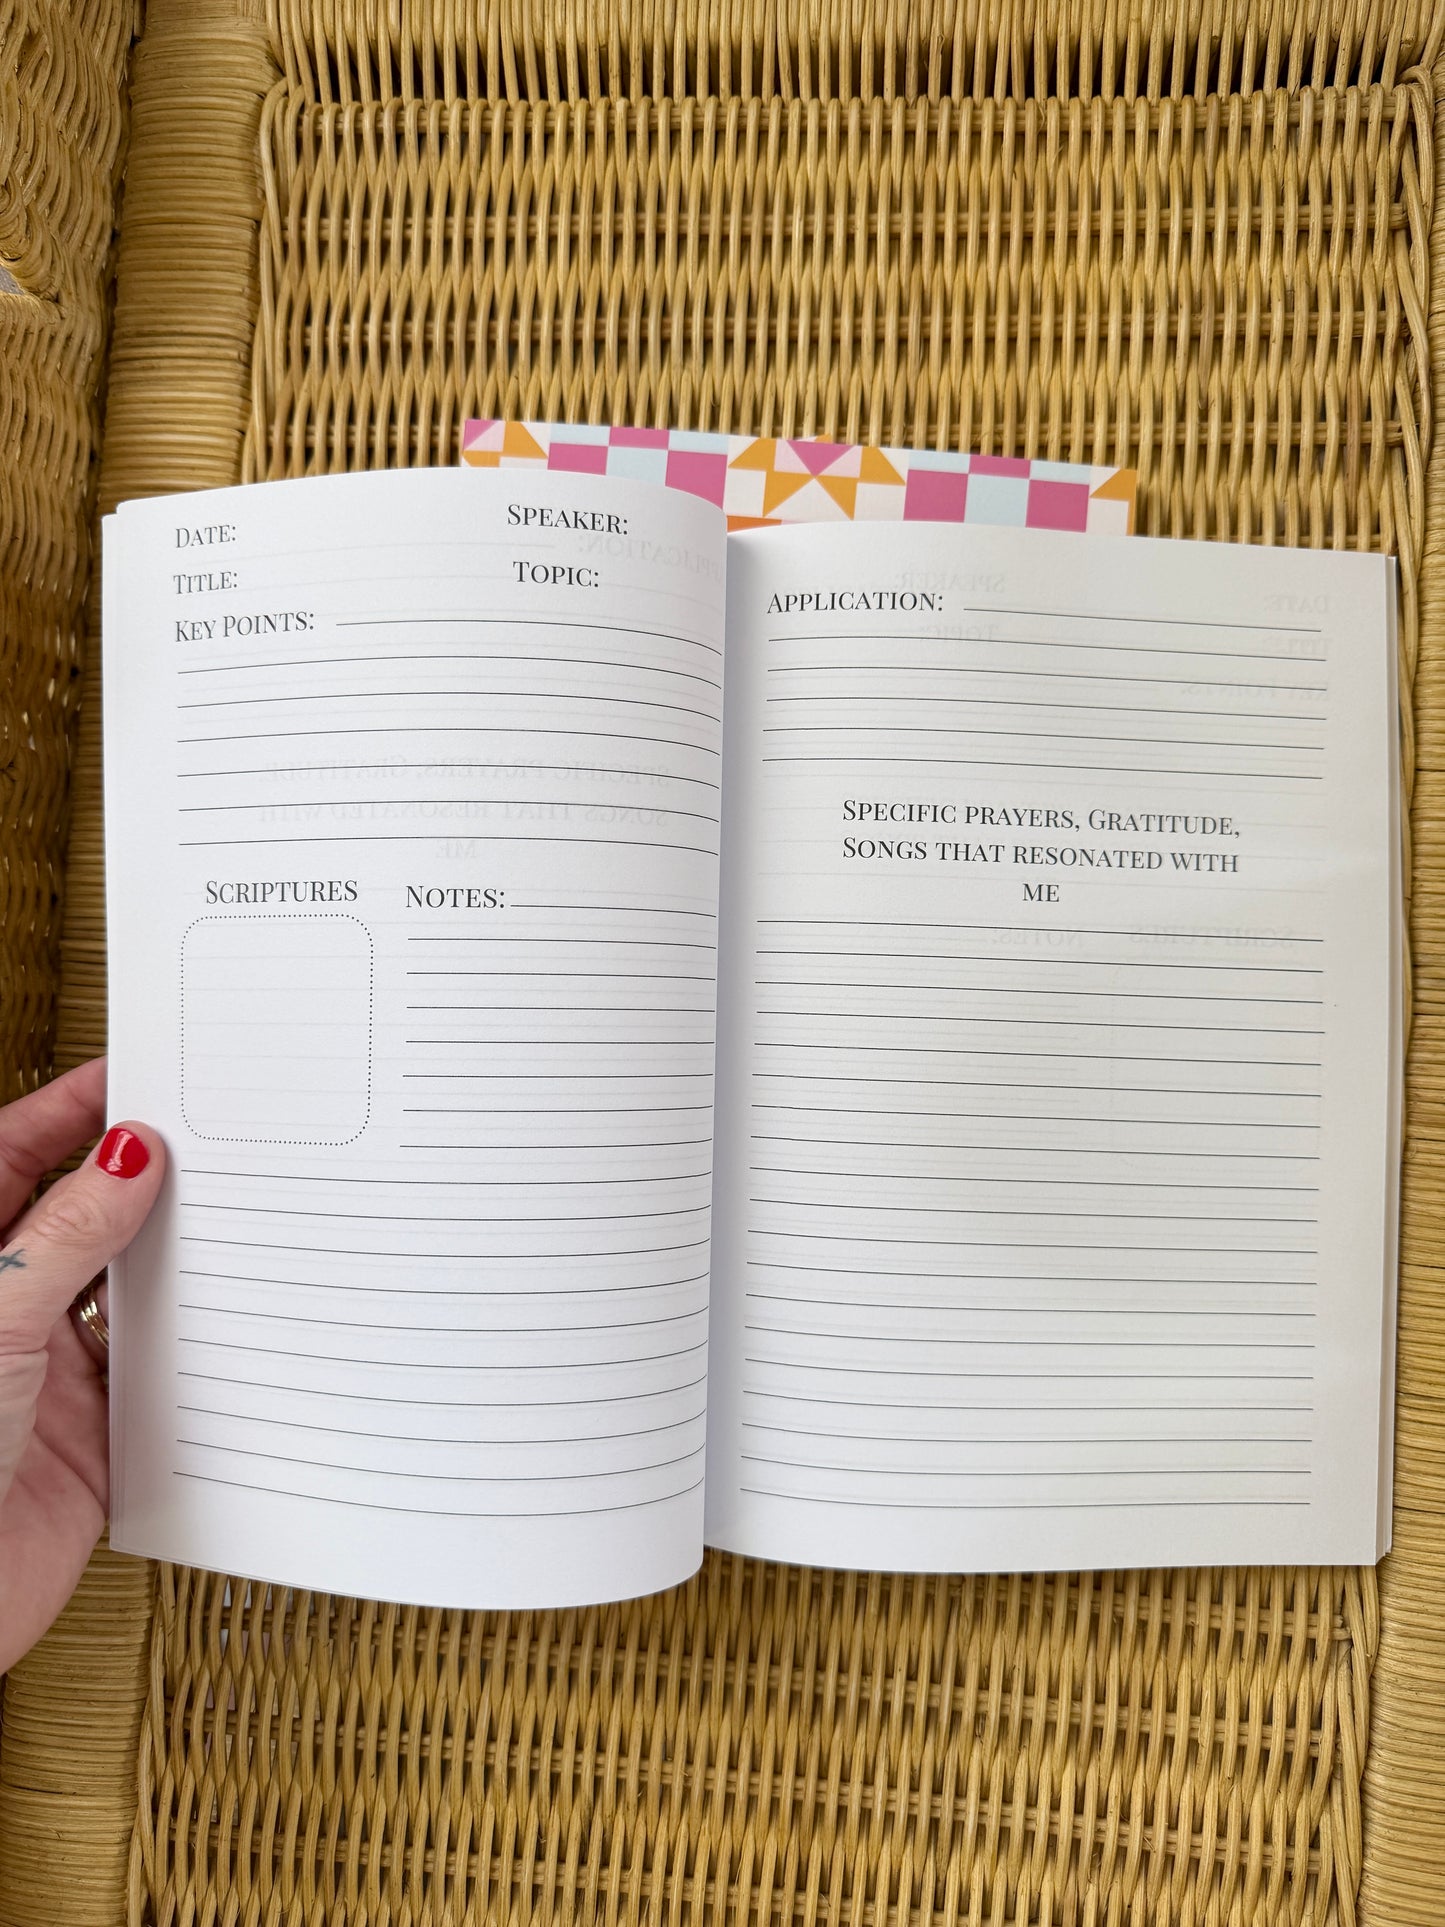 Date:
Speaker:
Title:
Topic:
Key Points:
Scriptures
Notes:
Application:
Specific prayers, Gratitude,
Songs that resonated with
me